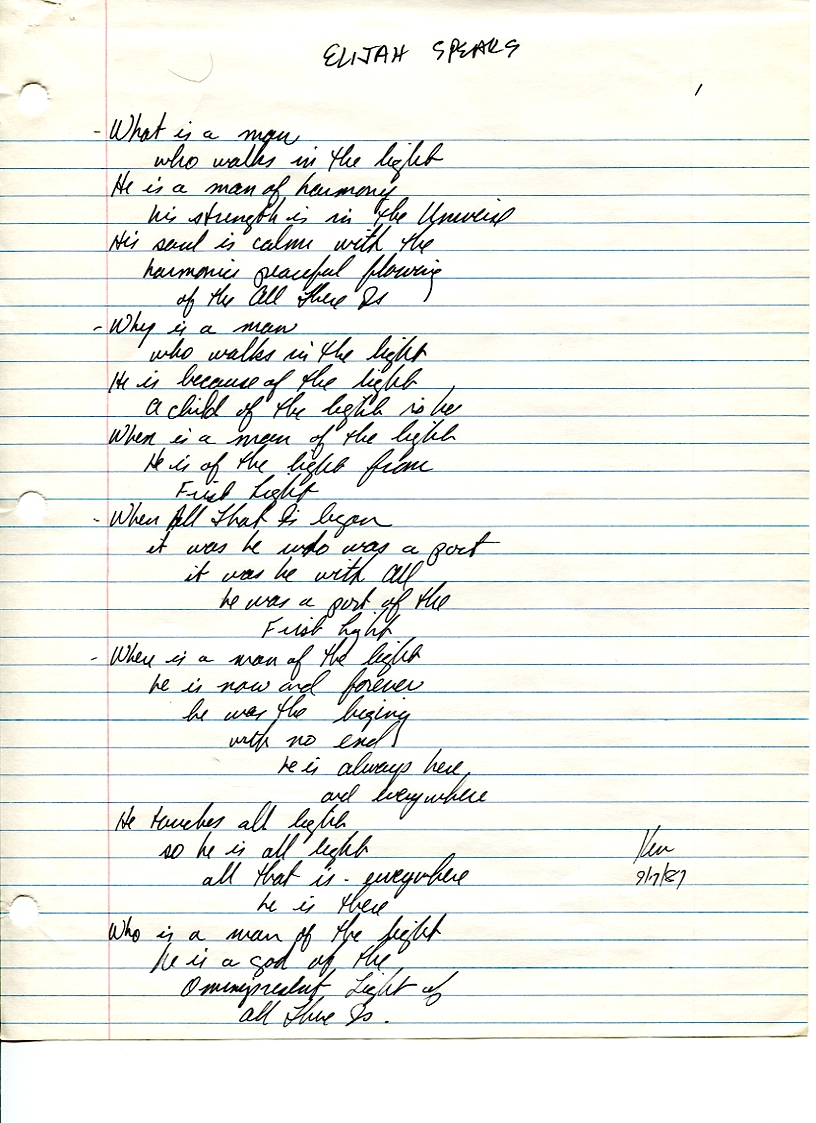 ELIJAH SPEAKS
1
- What is a man
who walks in the light
He is a man of harmony
his strength is in the Universe
His soul is calm with the
harmonics peaceful flowing
of the All There Is
- Why is a man
who walks in the light
He is because of the light
A child of the light is he
When is a man of the light
He is of the light from
First Light
- When All That Is began
it was he who was a part
it was he with All
he was a part of the
First Light
- Where is a man of the light
he is now and forever
he was the
with no end
he is always here
and everywhere
He touches all light
so he is all light
all that is - everywhere
he is there
Ken
9/7/87
Who is a man of the light
He is a god of the
Light of
all There Is.